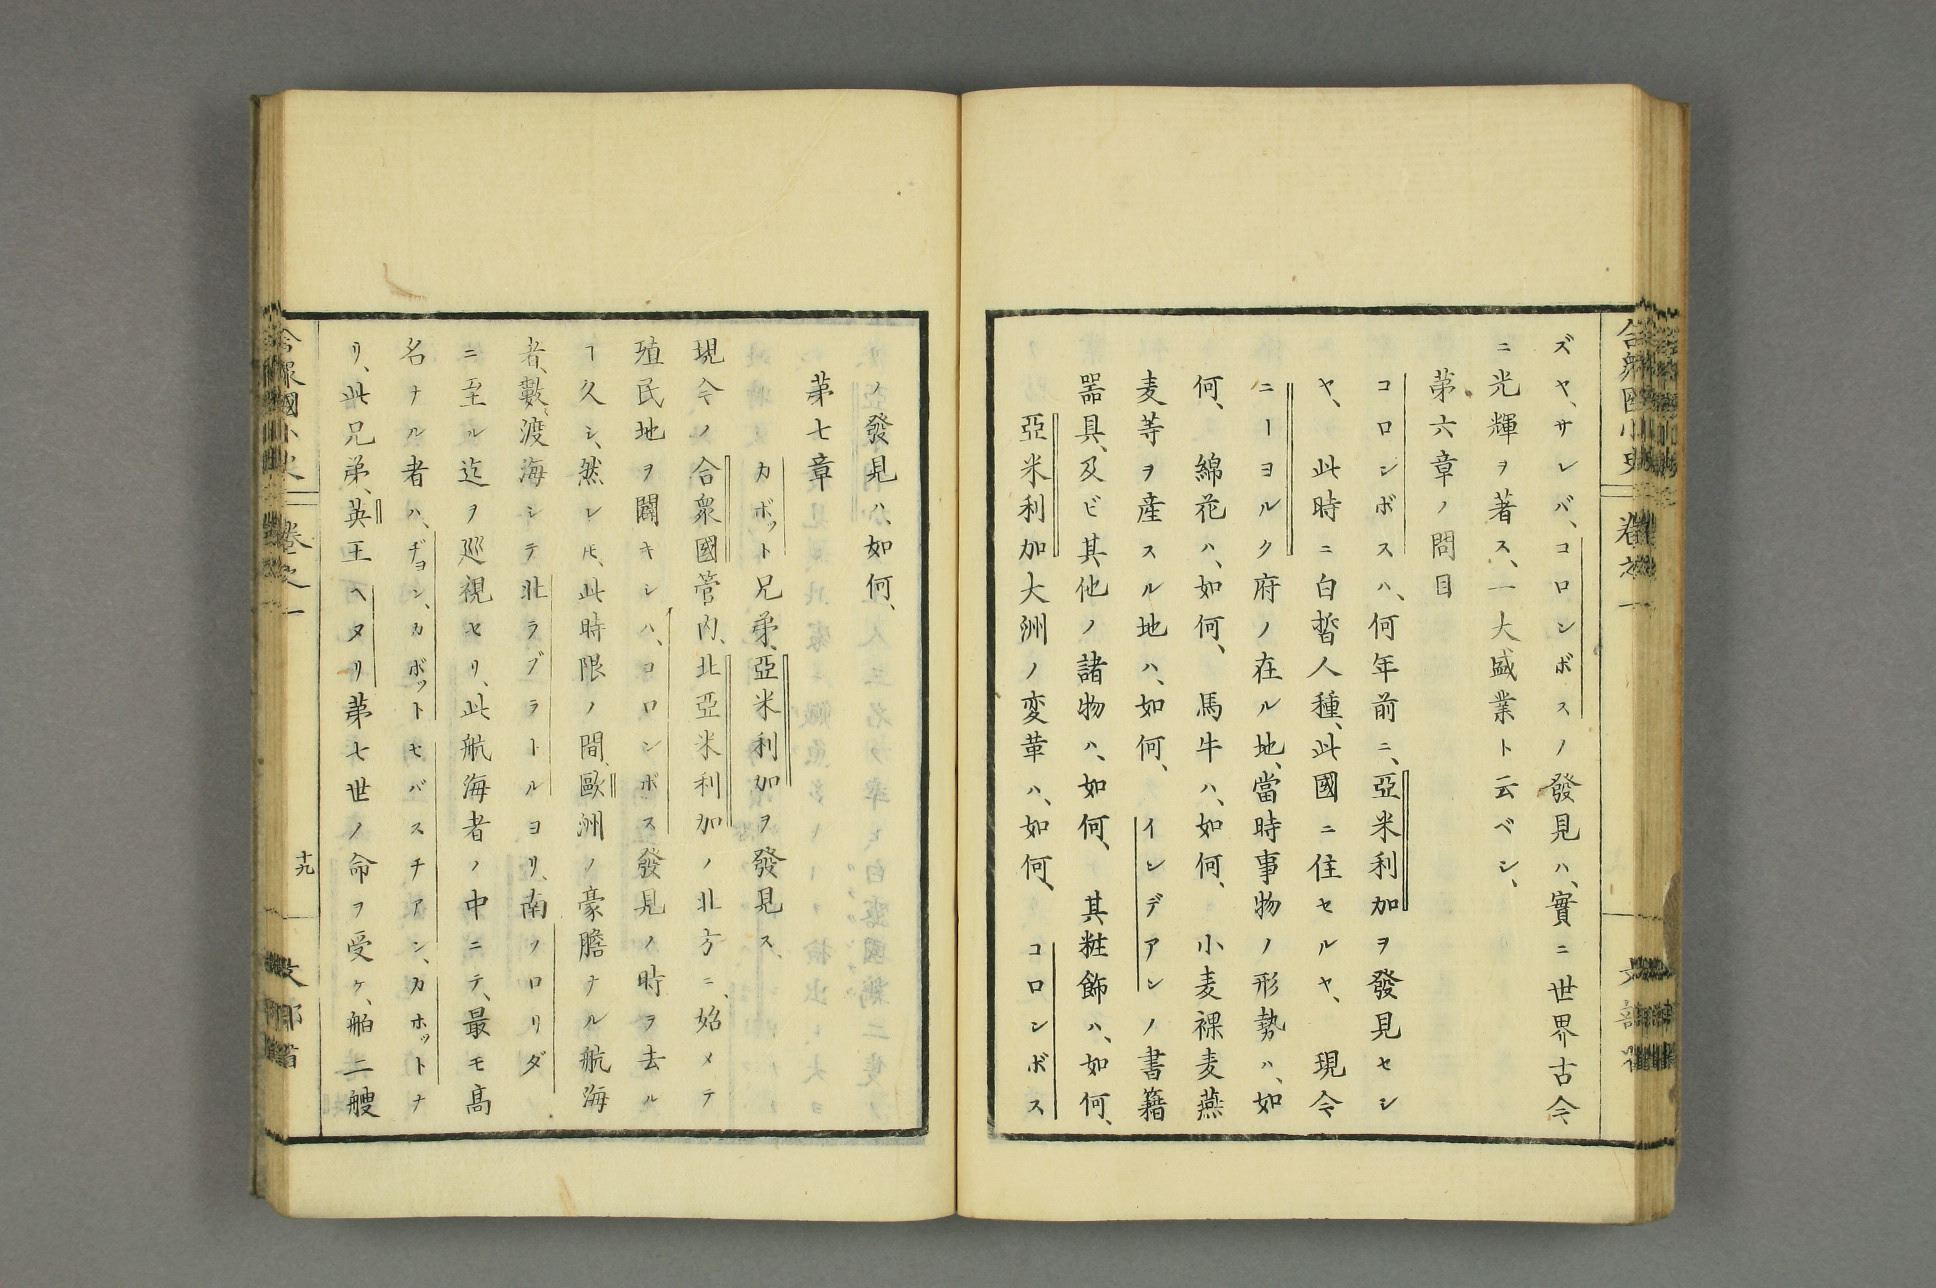 ズヤ、サレバ、コロンボスノ發見ハ、實ニ世界古今
ニ光輝ヲ著ス、一大盛業ト云ベシ、
第六章ノ問目
コロンボスハ、何年前ニ、亞米利加ヲ發見セシ
ヤ、此時ニ白皙人種、此國ニ住セルヤ、現今
ニーヨルク府ノ在ル地、當時事物ノ形勢ハ、如
何、綿花ハ、如何、馬牛ハ、如何、小麦裸麦燕
麦等ヲ産スル地ハ、如何、インデアンノ書籍
器具、及ビ其他ノ諸物ハ、如何、其粧飾ハ、如何、
亞米利加大洲ノ変革ハ、如何、コロンボス
ノ發見ハ、如何、
第七章
カボット兄弟、亞米利加ヲ發見ス
現今ノ合衆國管内、北亞米利加ノ北方ニ、始メテ
殖民地ヲ闢キシハ、コロンボス發見ノ時ヲ去ル
ヿ久シ、然レ𪜈、此時限ノ間、歐洲ノ豪膽ナル航海
者、數〻渡海シテ北ラブラトルヨリ、南フロリダ
ニ至ル迄ヲ巡視セリ、此航海者ノ中ニテ、最モ高
名ナル者ハ、ヂョン、カボットセバスチアン、カボットナ
リ、此兄弟、英王ヘヌリ第七世ノ命ヲ受ケ、船二艘
合衆國小史
卷之一
十九
文部省